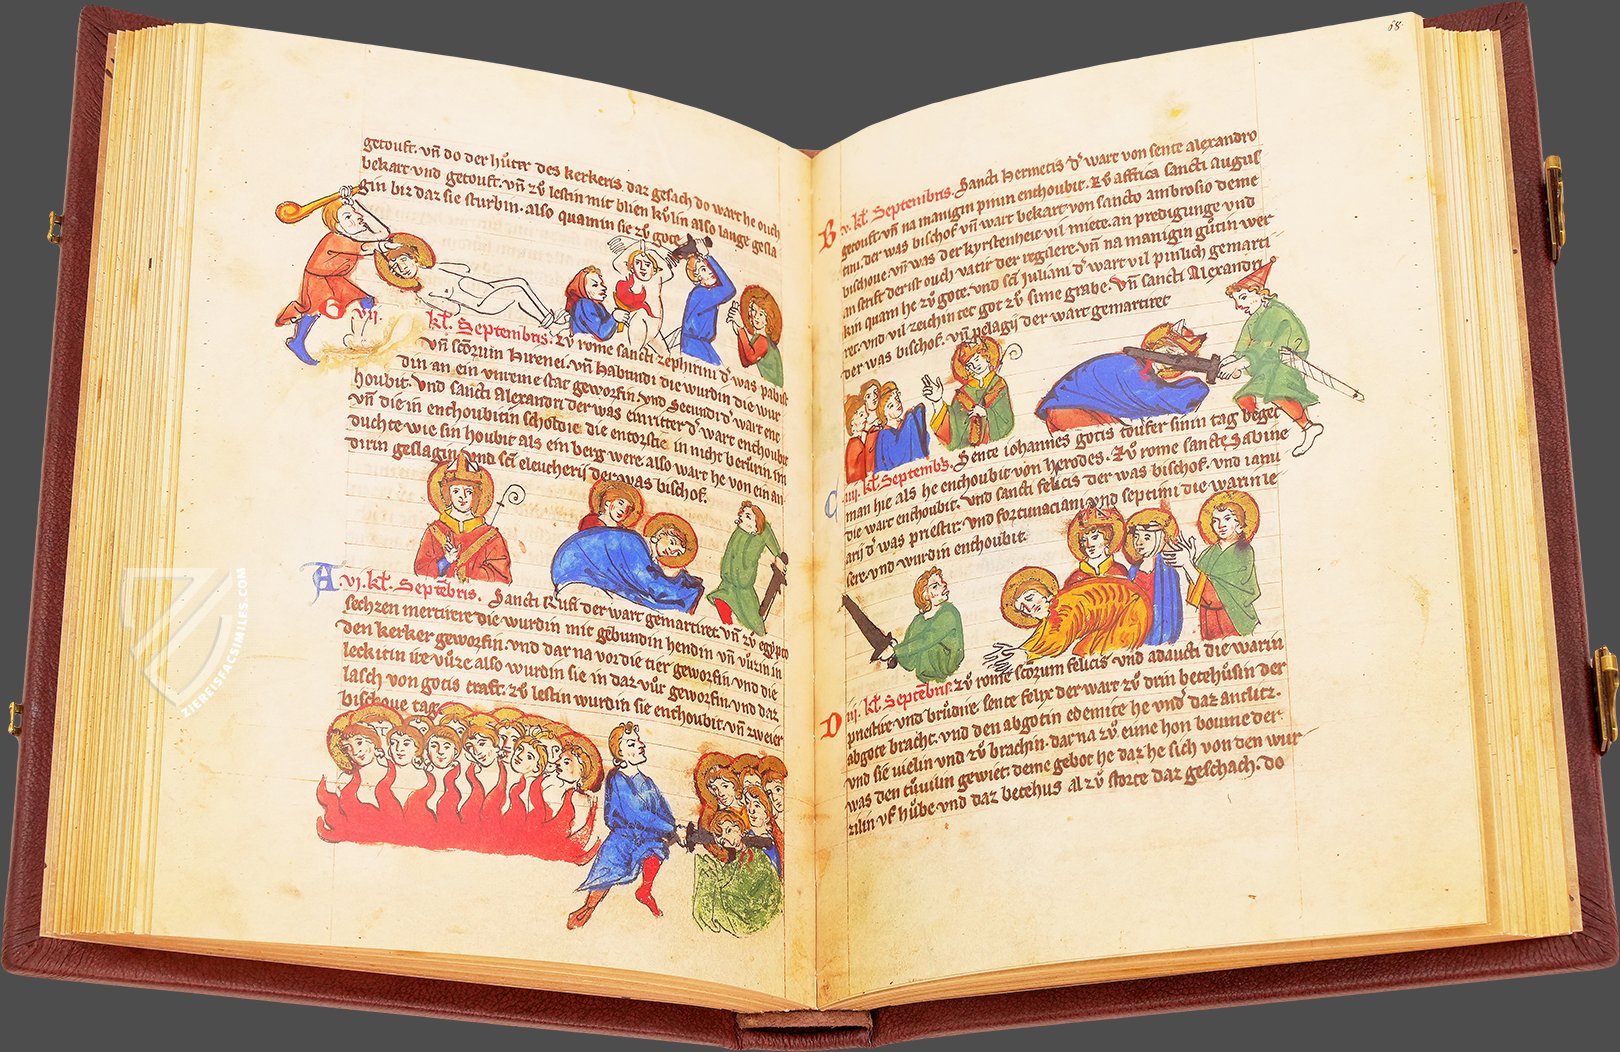 getouft. vn̄ do der hůter des kerkeris daz gesach do wart he ouch
bekart vnd getouft. vn̄ zů lestin mit blien kůlin also lange gesla
gin biz daz sie sturbin. also quamin sie zů gote
G vij. kl̄. Septembris. Zů rome sancti zephirini d' was pabist
vn̄ sc̄orum hirenei. vn̄ habundi die wurdin die wur
din an ein vnreine stat geworfin. vnd Secundi d' wart ent
houbit. vnd sancti Alexandri der was ein ritter d' wart enthoubit
vn̄ die in enthoubitin
duchte wie sin houbit als ein berg were also wart he von ein an
dirin geslagin. vnd sc̄i eleutherij der was bischof.
A vi. kl̄. Septēbris. Sancti Rufi der wart gemartiret. vn̄ zů egypto
sechzen mertirere die wurdin mit gebundin hendin vn̄ vůzin in
den kerker geworfin. vnd dar na vor die tier geworfin. vnd die
leckitin ire vůze also wurdin sie in daz vůr geworfin. vnd daz
lasch von gotis craft. zů lestin wurdin sie enthoubit. vn̄ zweier
bischoue tag.
68
B v. kl̄. Septembris. Sancti hermetis d' wart von sente alexandro
getouft. vn̄ na manigin pinin enthoubit. Zů affrica sancti augus
tini. der was bischof vn̄ wart bekart von sancto ambrosio deme
bischoue. vn̄ was der kyrstenheit vil nutze. an predigunge vnd
an scrift der ist ouch vatir der reglere. vn̄ na manigin gůtin wer
kin quam he zů gote. vnd sc̄i Juliani d' wart vil pinlich gemarti
ret. vnd vil zeichin tet got zů sime grabe. vn̄ sancti Alexandri
der was bischof. vn̄ pelagij der wart gemartiret
C iiij. kl̄. Septembs. Sente iohannes gotis toufer sinin tag beget
man hie als he enthoubit von herodes. Zů rome sancte Sabine
die wart enthoubit. vnd sancti felicis der was bischof. vnd ianu
arij d' was priestir. vnd fortunaciani vnd septimi die warin le
sere. vnd wurdin enthoubit.
D iij. kl̄. Septēbris. Zů rome sc̄orum felicis vnd adaucti die warin
priestire. vnd brůdire. sente felix der wart zů drin betehůsin der
abgote bracht. vnd den abgotin edemite he vnd' daz antlitz.
vnd sie vielin vnd zů brachin. dar na zů eime hon boume der
was den tůuilin gewiet deme gebot he daz he sich von den wur
zilin vf hůbe. vnd daz betehus al zů storte daz geschach. do
ZIEREISFACSIMILES.COM